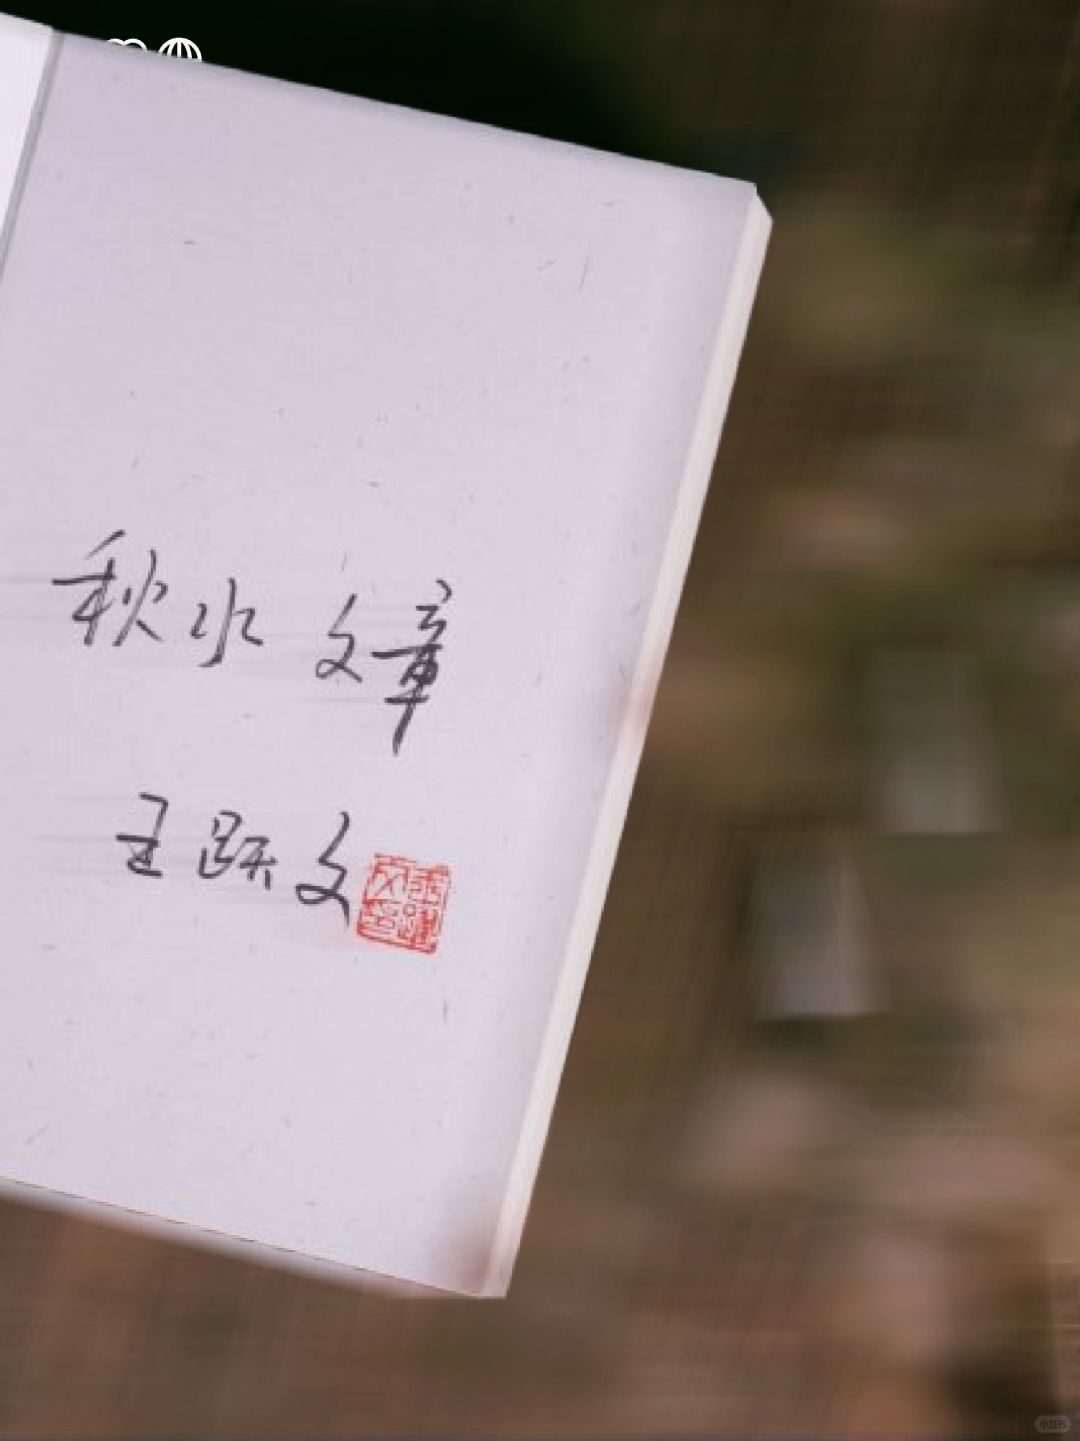 秋水文章
王跃文
小红书